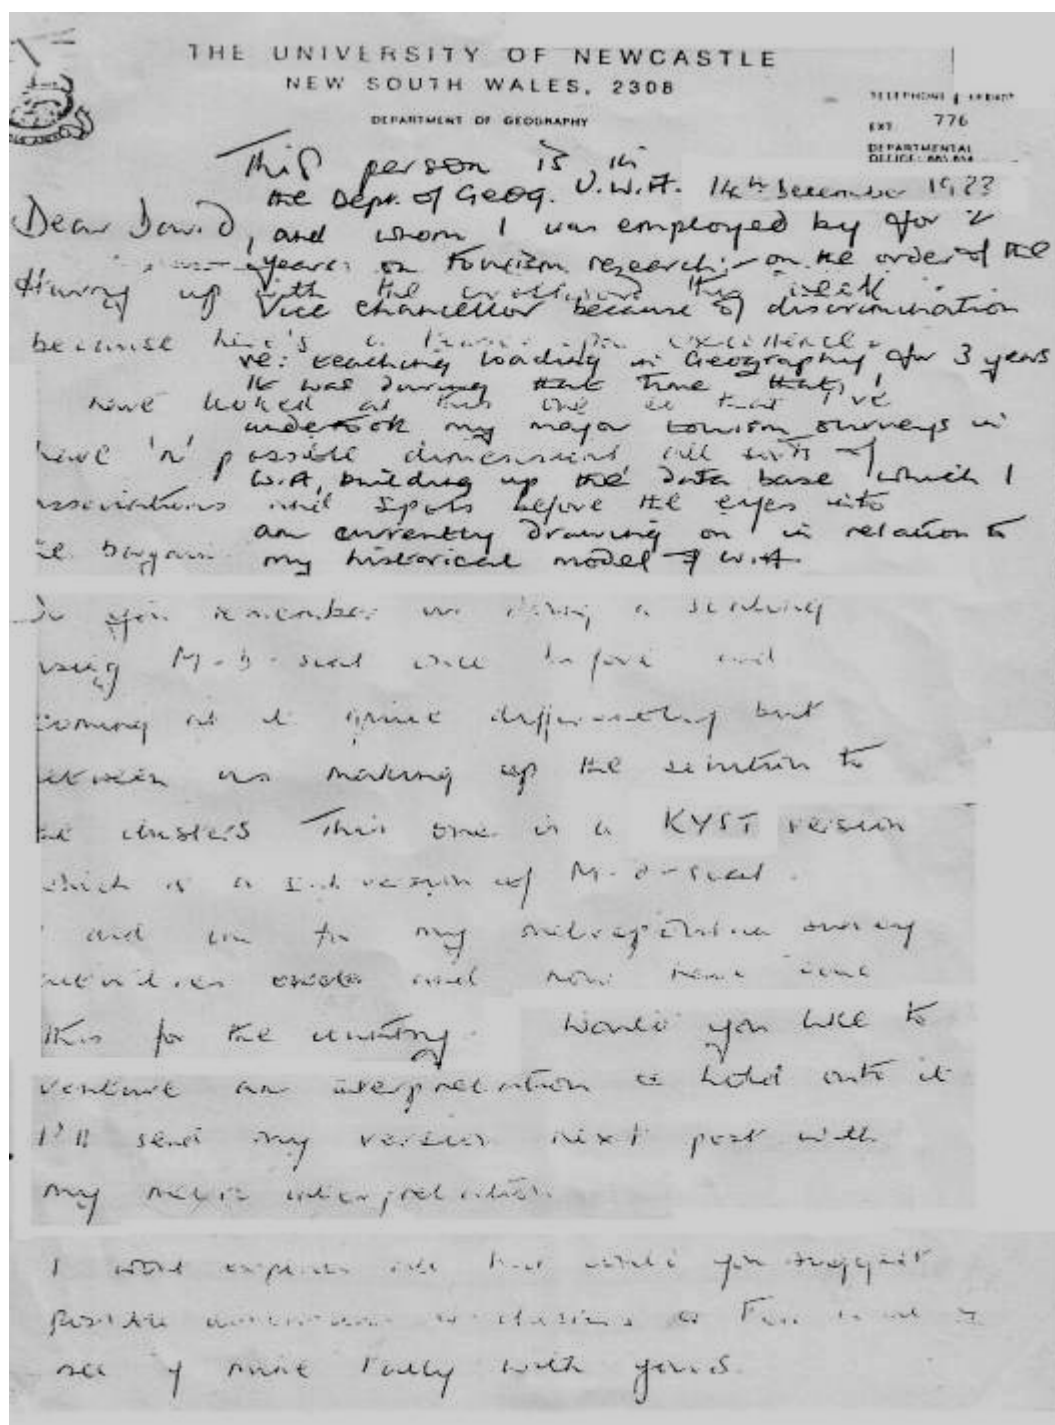 THE UNIVERSITY OF NEWCASTLE
NEW SOUTH WALES, 2308
DEPARTMENT OF GEOGRAPHY
TELEPHONE
EXT. 776
DEPARTMENTAL
OFFICE:
This person is in
the Dept. of Geog. U.W.A. 14th December
Dear David, and whom I was employed by for 2
years on tourism research; - on the order of the
Hurry up with the this week
Vice Chancellor because of discrimination
because here's a
re: teaching loading in Geography for 3 years
It was during that time, that I
have looked at this one so that I've
undertook my major tourism surveys in
have 'n' possible dimensions all sorts of
W.A, building up the data base which I
associations and spots before the eyes into
am currently drawing on in relation to
the bargain. my historical model of W.A.
Do you remember me doing a
using M-D-scal once before and
coming at it quite differently but
between us making up the solution to
the clusters This one is a KYST version
which is a version of M-D-scal.
I did one for my survey
and now have one
this for the country. Would you like to
venture an interpretation or hold onto it
I'll send my version next post with
my interpretation.
I won't explain but would you suggest
possible dimensions or clusters
see if mine tally with yours.